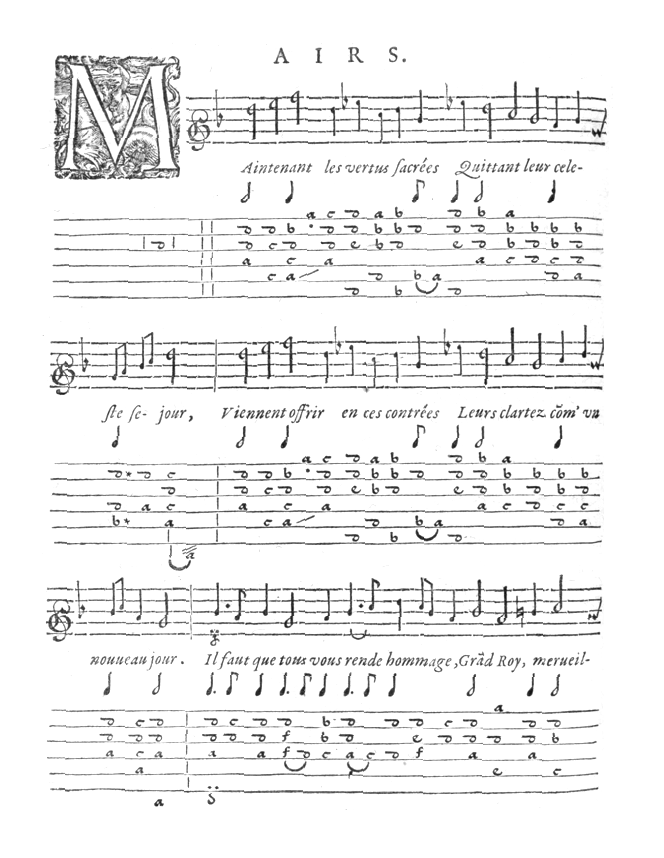 AIRS.
MAintenant les vertus ſacrées Quittant leur cele-
ſte ſe- jour, Viennent offrir en ces contrées Leurs clartez cõm' vn
nouueau jour. Il faut que tous vous rende hommage, Grãd Roy, merueil-